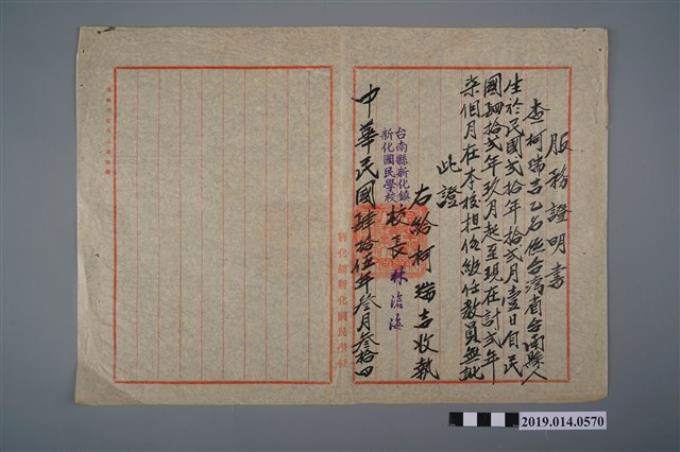 服務證明書
查柯瑞吉乙名係台湾省台南縣人
生於民國貳拾年拾貳月壹日自民
國肆拾貳年玖月起至現在計貳年
柒個月在本校担任級任教員無訛
此證
右給柯瑞吉收執
台南縣新化鎮
新化國民學校
校長林滄海
中華民國肆拾伍年叁月叁拾日
新化鎮新化國民學校
2019.014.0570